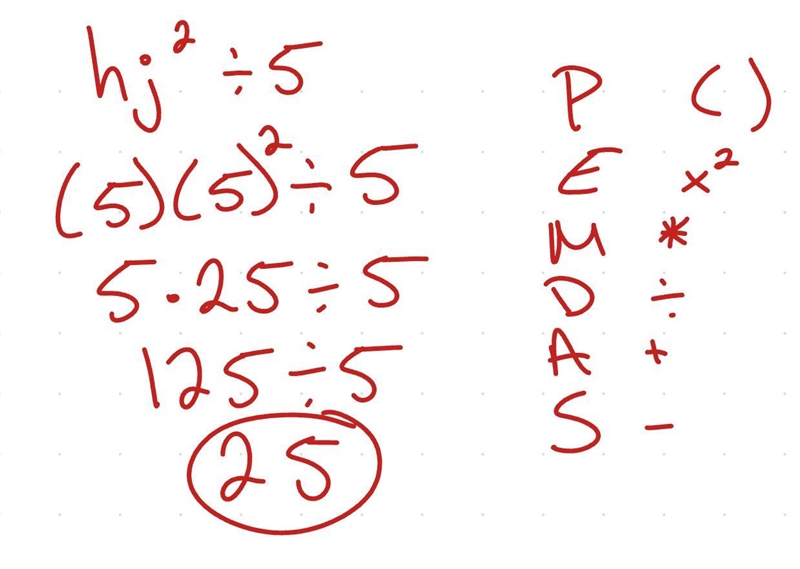 hj² ÷ 5
(5)(5)² ÷ 5
5 · 25 ÷ 5
125 ÷ 5
25
P ( )
E x²
M *
D ÷
A +
S −